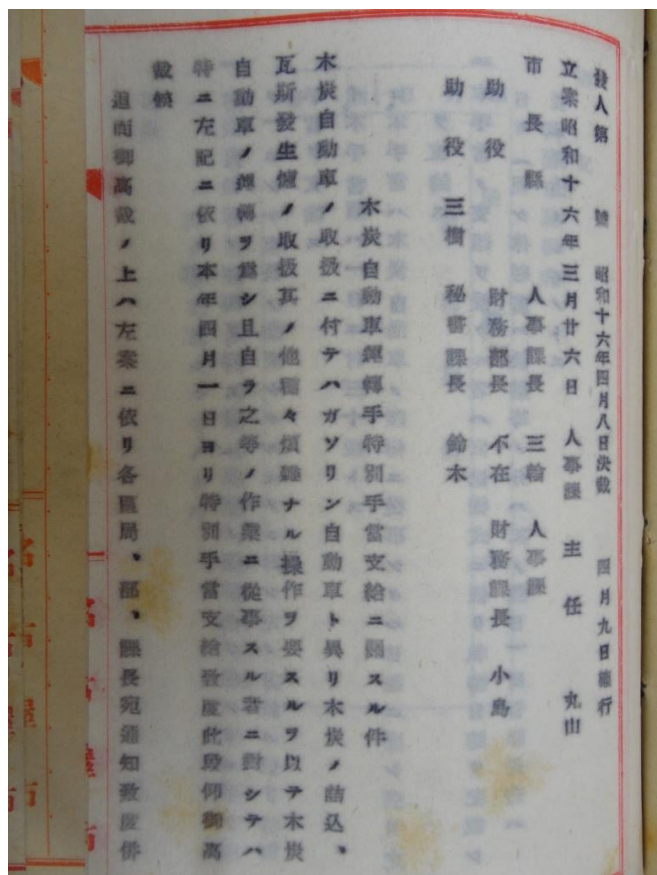 發人第　　號　昭和十六年四月八日決裁　四月九日施行
立案昭和十六年三月廿六日　人事課　主任　丸山
市長　縣　人事課長　三輪　人事課
助役　財務部長　不在　財務課長　小島
助役　三樹　秘書課長　鈴木
木炭自動車運轉手特別手當支給ニ關スル件
木炭自動車ノ取扱ニ付テハガソリン自動車ト異リ木炭ノ詰込、
瓦斯發生爐ノ取扱其ノ他種々煩雜ナル操作ヲ要スルヲ以テ木炭
自動車ノ運轉ヲ爲シ且自ラ之等ノ作業ニ從事スル者ニ對シテハ
特ニ左記ニ依リ本年四月一日ヨリ特別手當支給致度此段仰御高
裁候
追而御高裁ノ上ハ左案ニ依リ各區局、部、課長宛通知致度併
名古屋市
名古屋市